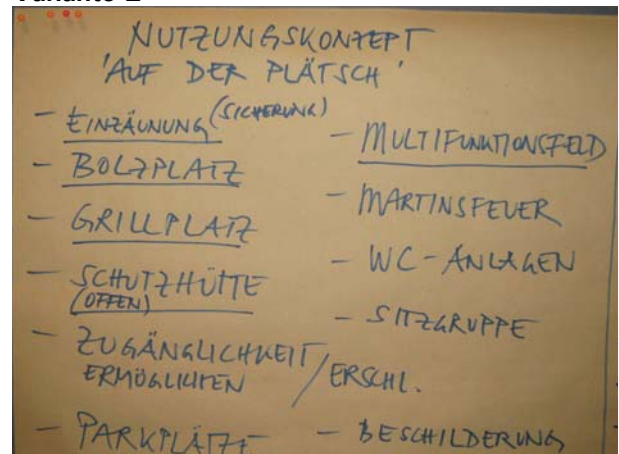 NUTZUNGSKONZEPT
'AUF DER PLÄTSCH'
- EINZÄUNUNG (SICHERUNG)
- BOLZPLATZ
- GRILLPLATZ
- SCHUTZHÜTTE
(OFFEN)
- ZUGÄNGLICHKEIT / ERSCHL.
ERMÖGLICHEN
- PARKPLÄTZE
- MULTIFUNKTIONSFELD
- MARTINSFEUER
- WC-ANLAGEN
- SITZGRUPPE
- BESCHILDERUNG